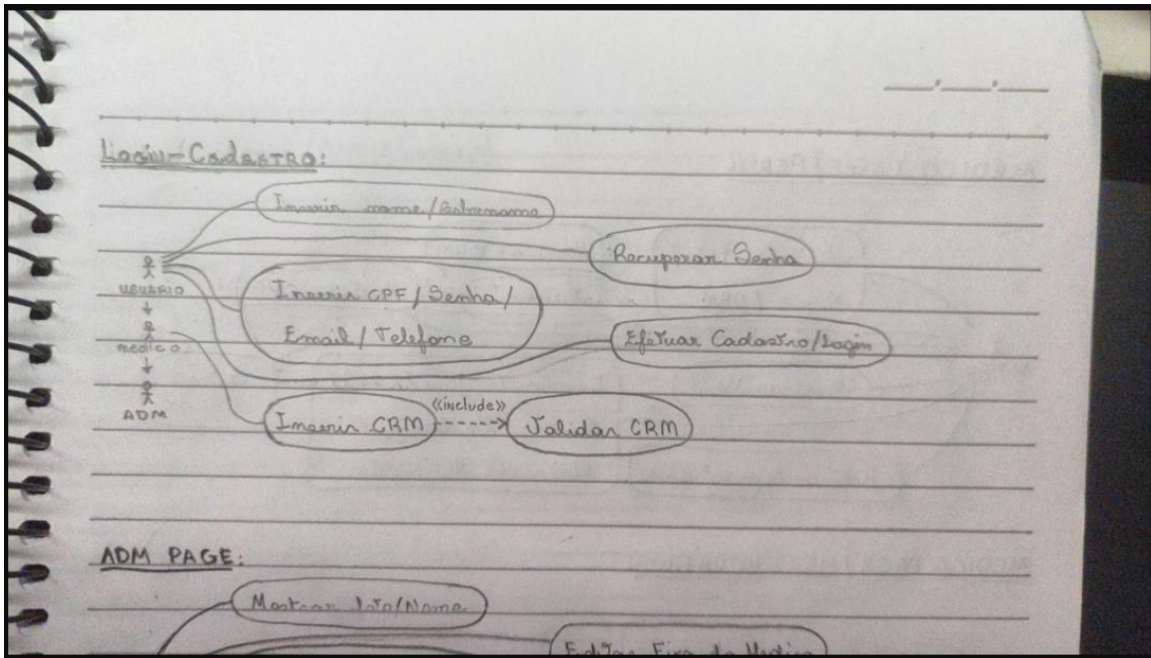 Login-Cadastro:
Inserir nome/Sobrenome
Recuperar Senha
USUARIO
Inserir CPF/Senha/
Email/Telefone
Efetuar Cadastro/Login
medico
ADM
Inserir CRM
«include»
Validar CRM
ADM PAGE:
Mostrar /Nome
Editar do Medico